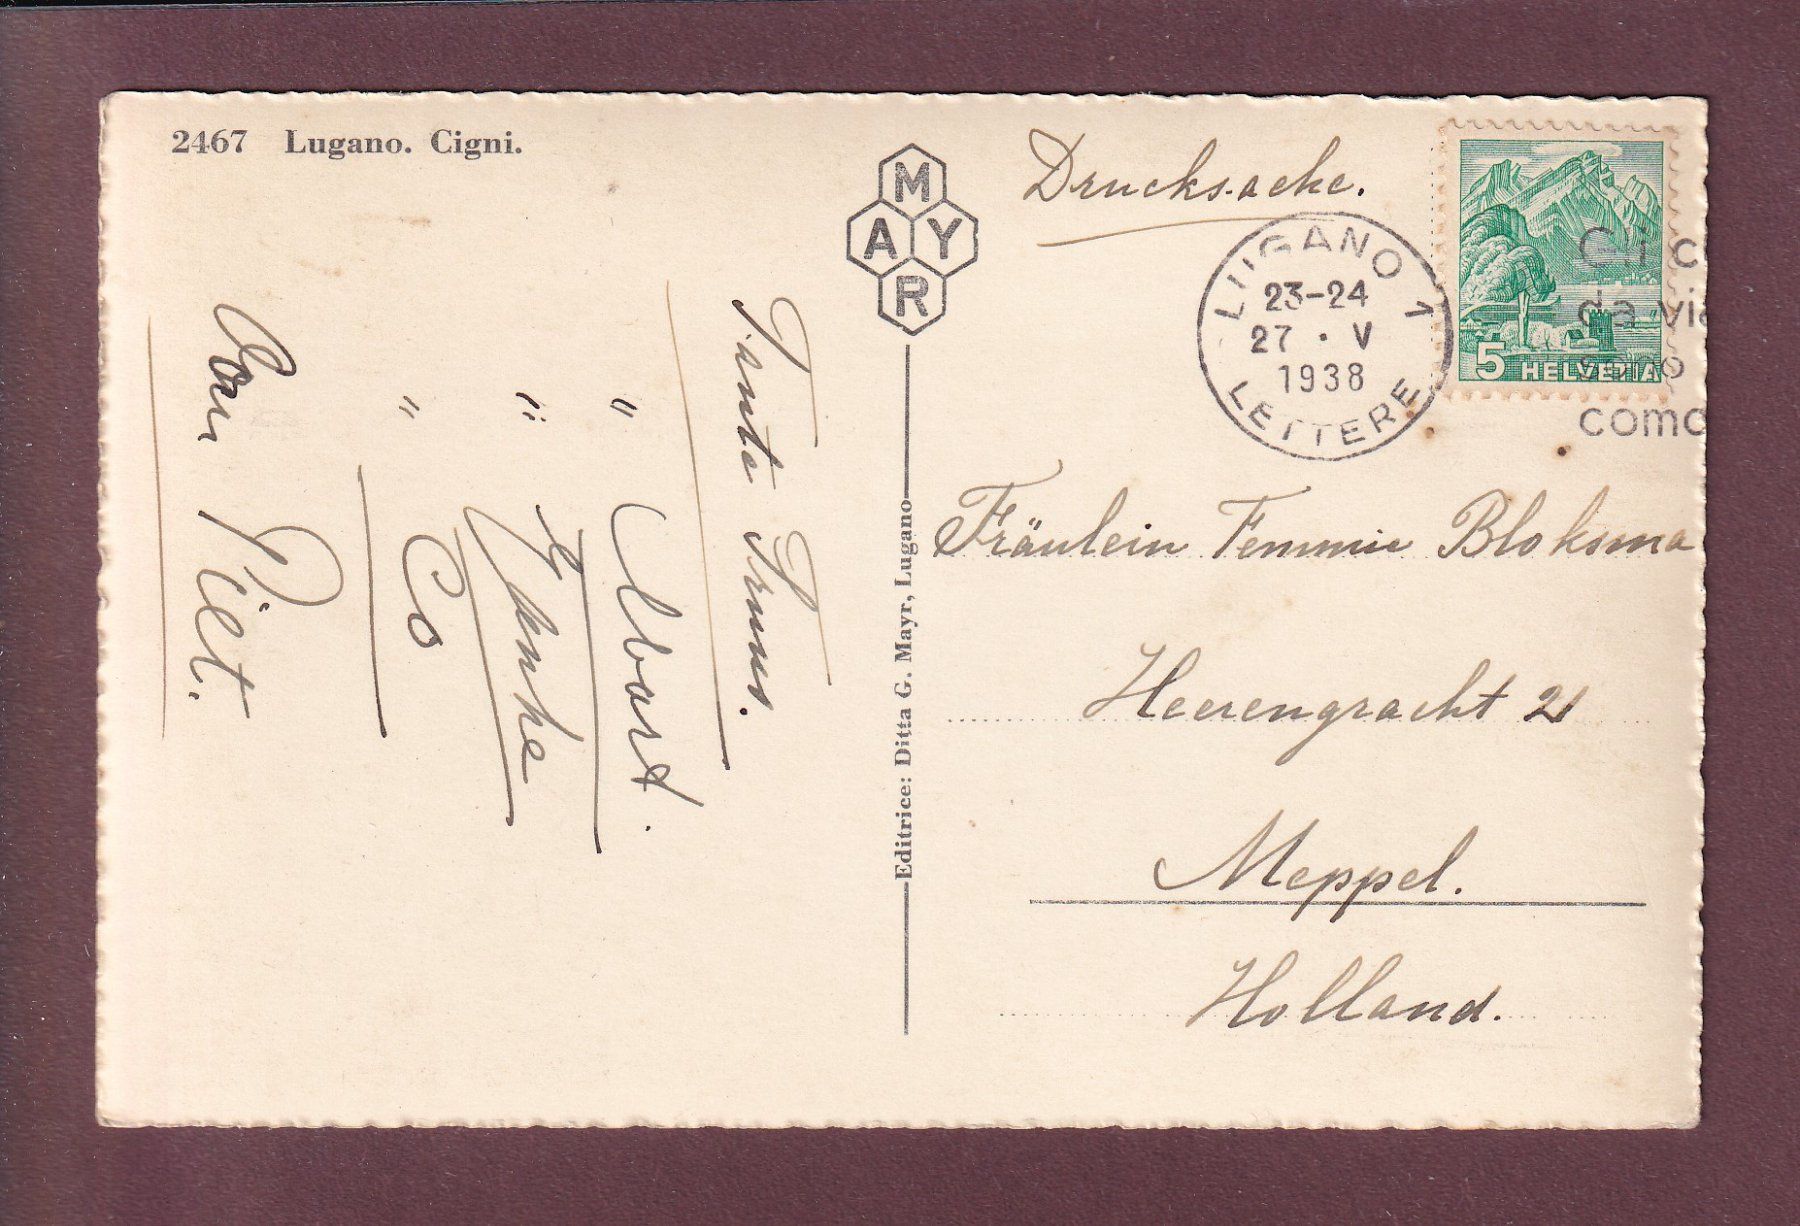 2467 Lugano. Cigni.
MAYR
Drucksache.
LUGANO 1
23-24
27 · V
1938
LETTERE
5 HELVETIA
da via
como
Fräulein Femmie Bloksma
Heerengracht 21
Meppel.
Holland.
Editrice: Ditta G. Mayr, Lugano
Tante Truus.
"
"
" Co
Piet.